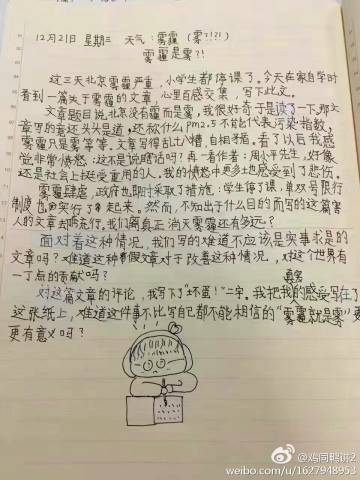 12月21日 星期三 天气:雾霾(雾?!?!)
雾霾是雾?!
这三天北京雾霾严重,小学生都停课了。今天在家自学时
看到一篇关于雾霾的文章,心里百感交集,写下此文。
文章题目说,北京没有霾而是雾。我很好奇于是读了一下,那文
章写的意还头头是道,还称什么pm2.5不能代表污染指数,
雾霾只是雾等等,文章写得乱七八糟,自相矛盾。看了以后我感
觉非常愤怒:这不是说瞎话吗?再一看作者:周小平先生,好像
还是社会上挺受重用的人,我的愤怒中更多也感受到了悲伤。
雾霾肆虐,政府也及时采取了措施:学生停课,单双号限行
制度也实行了起来。然而,不知出于什么目的而写的这篇害
人的文章却流行。我们离真正消灭雾霾还有多远?
面对着这种情况,我们写的难道不应该是实事求是的
文章吗?难道这种假文章对于改善这种情况,对这个世界有
一丁点的贡献吗?
对这篇文章的评论,我写下了"坏蛋!"二字。我把我的真实感受写在了
这张纸上,难道这件事不比写自己都不能相信的"雾霾就是雾"更
更有意义吗?
@鸡同鸭讲2
weibo.com/u/1627948953